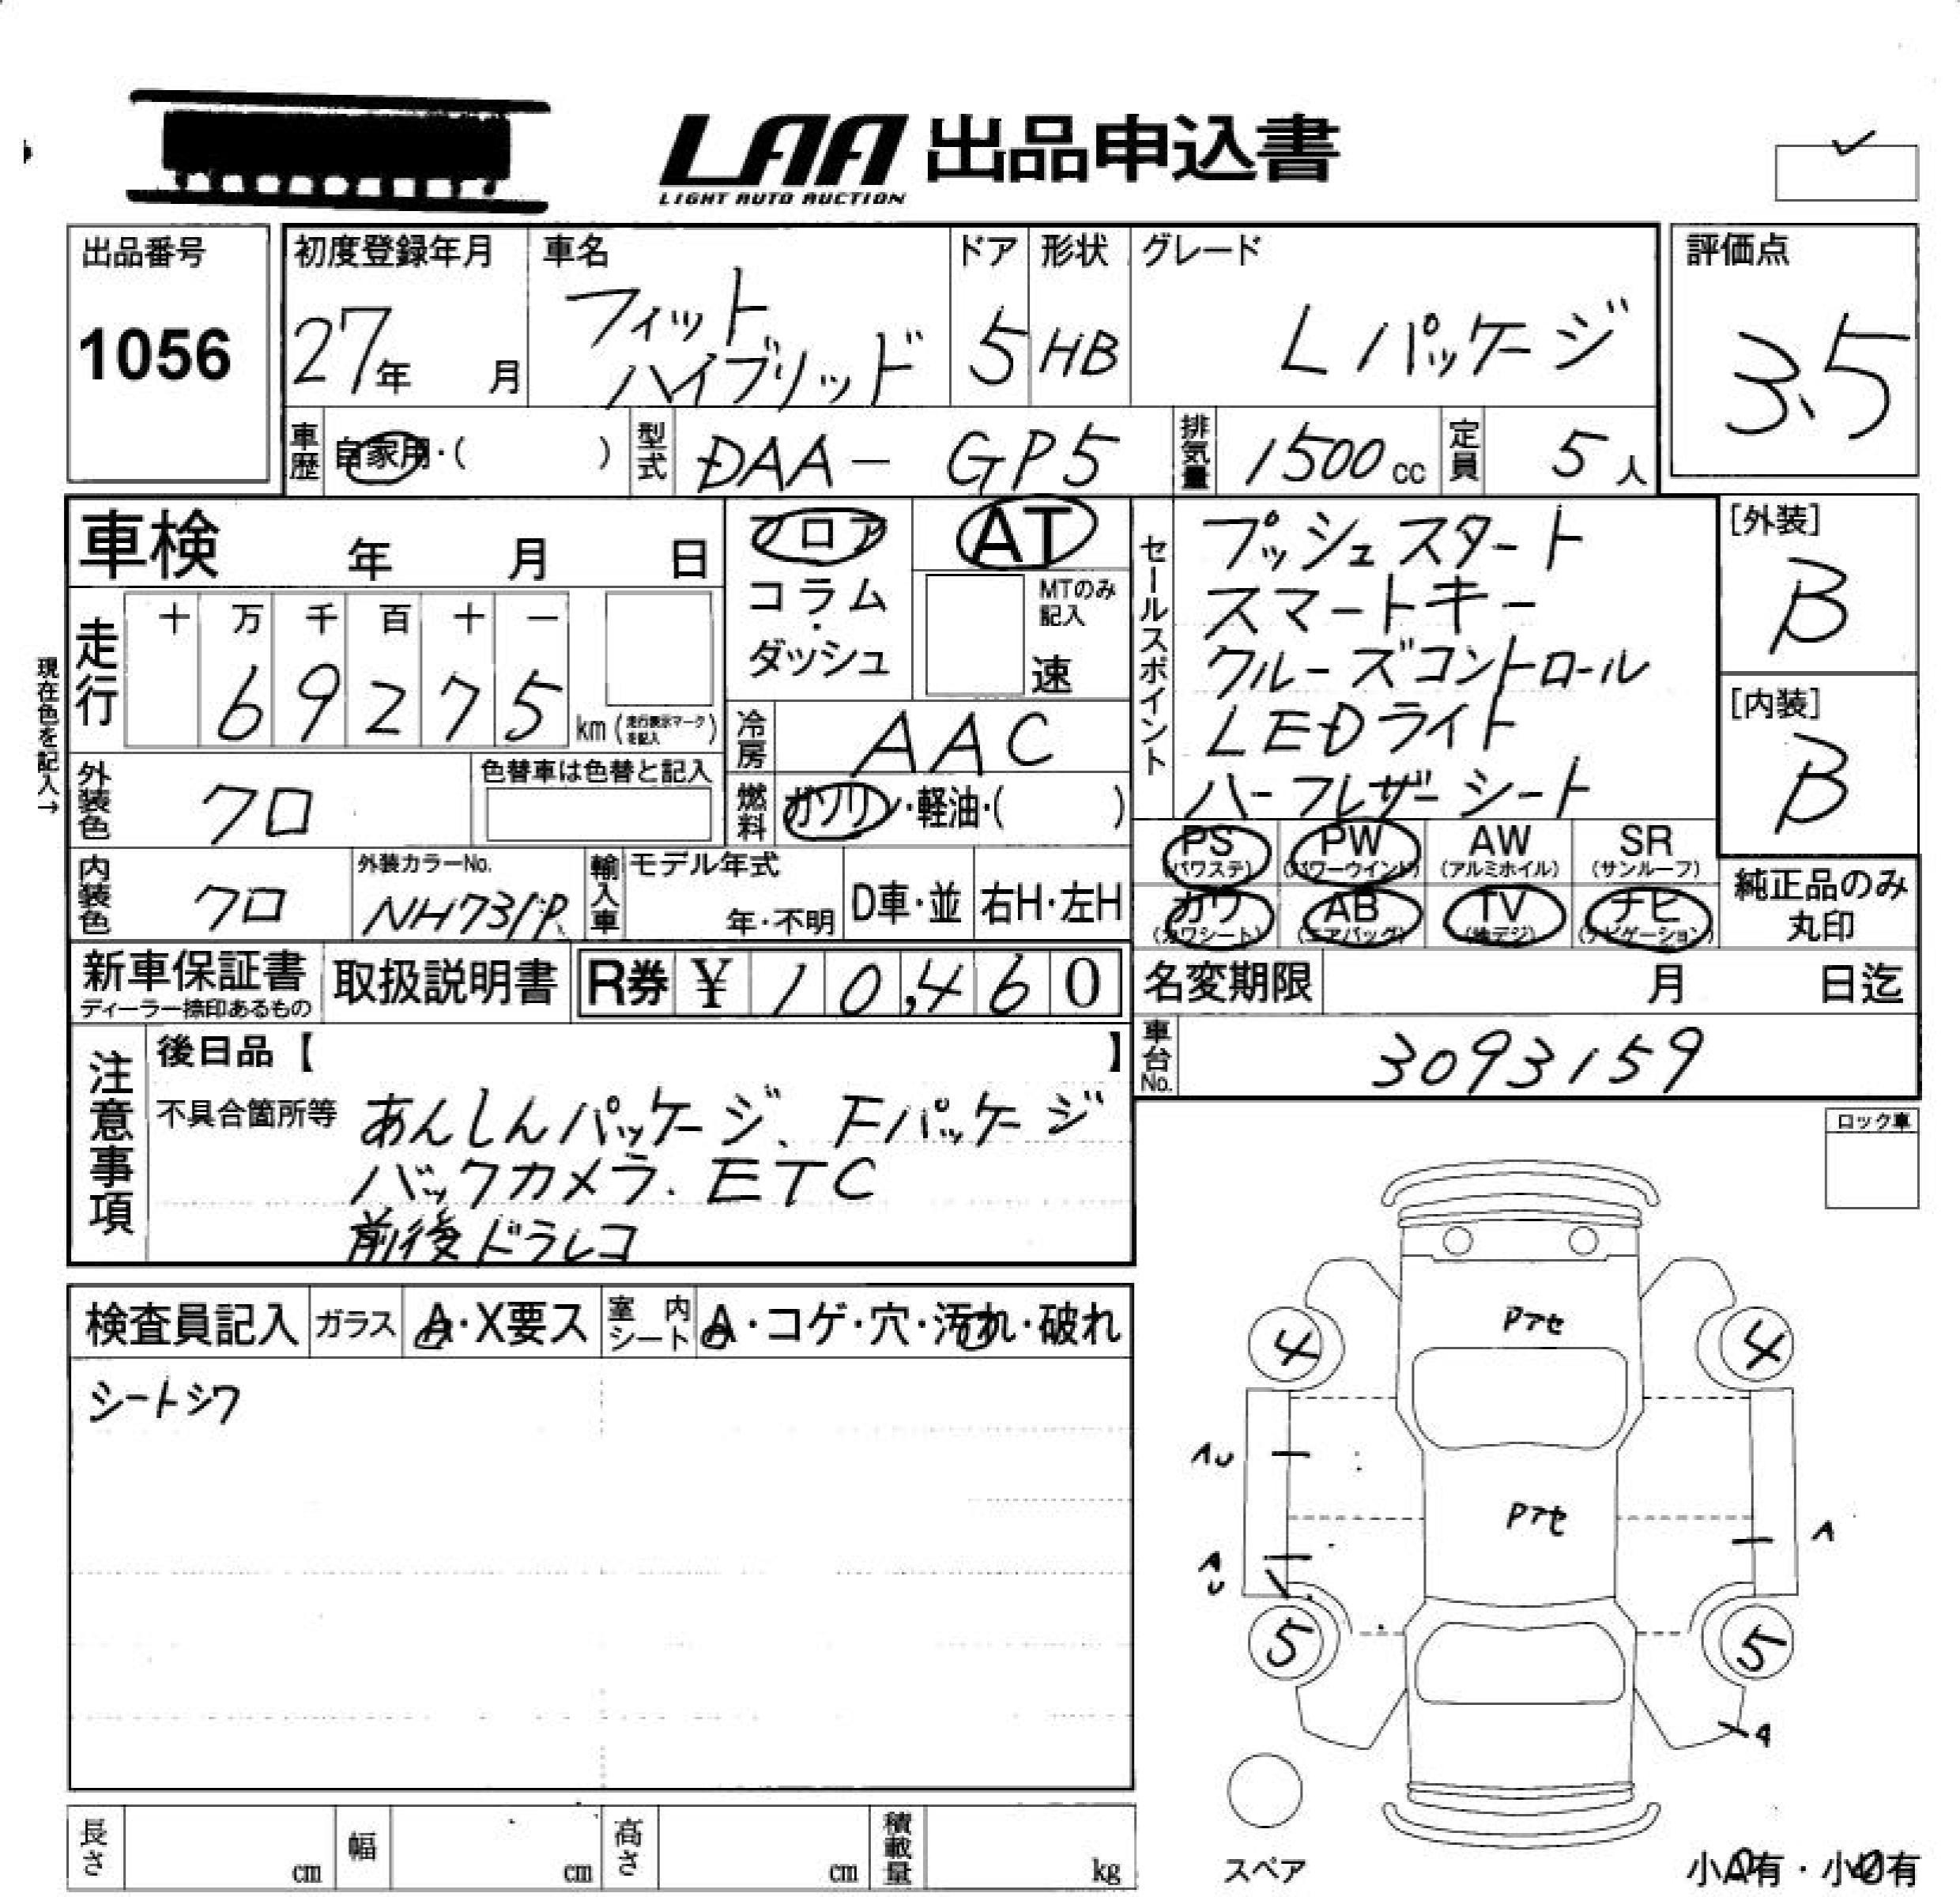 LAA 出品申込書
LIGHT AUTO AUCTION
出品番号
1056
初度登録年月
27年 月
車名
フィット
ハイブリッド
ドア
5
形状
HB
グレード
Lパッケージ
評価点
3.5
車歴
自家用・( )
型式
DAA-GP5
排気量
1500cc
定員
5人
車検 年 月 日
フロア
コラム
・
ダッシュ
AT
MTのみ
記入
速
セールスポイント
プッシュスタート
スマートキー
クルーズコントロール
LEDライト
ハーフレザーシート
[外装]
B
[内装]
B
現在色を記入→
走行
十 万 千 百 十 一
6 9 2 7 5
km (走行表示マークを記入)
冷房
AAC
外装色
クロ
色替車は色替と記入
燃料
ガソリン・軽油・( )
PS
(パワステ)
PW
(パワーウインド)
AW
(アルミホイル)
SR
(サンルーフ)
カワ
(カワシート)
AB
(エアバッグ)
TV
(地デジ)
ナビ
(ナビゲーション)
純正品のみ
丸印
内装色
クロ
外装カラーNo.
NH731P
輸入車
モデル年式
年・不明
D車・並
右H・左H
新車保証書
ディーラー捺印あるもの
取扱説明書
R券 ¥ 10,460
名変期限 月 日迄
車台No.
3093159
注意事項
後日品【 】
不具合箇所等 あんしんパッケージ、Fパッケージ
バックカメラ. ETC
前後ドラレコ
ロック車
検査員記入
ガラス
A・X要ス
室内シート
A・コゲ・穴・汚れ・破れ
シートシワ
Pアセ
4
4
AU
Pアセ
A
AU
5
5
A
スペア
小A有・小U有
長さ cm
幅 cm
高さ cm
積載量 kg